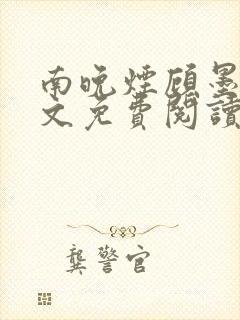 南晚煙顾墨
文免費閱讀
龔警官